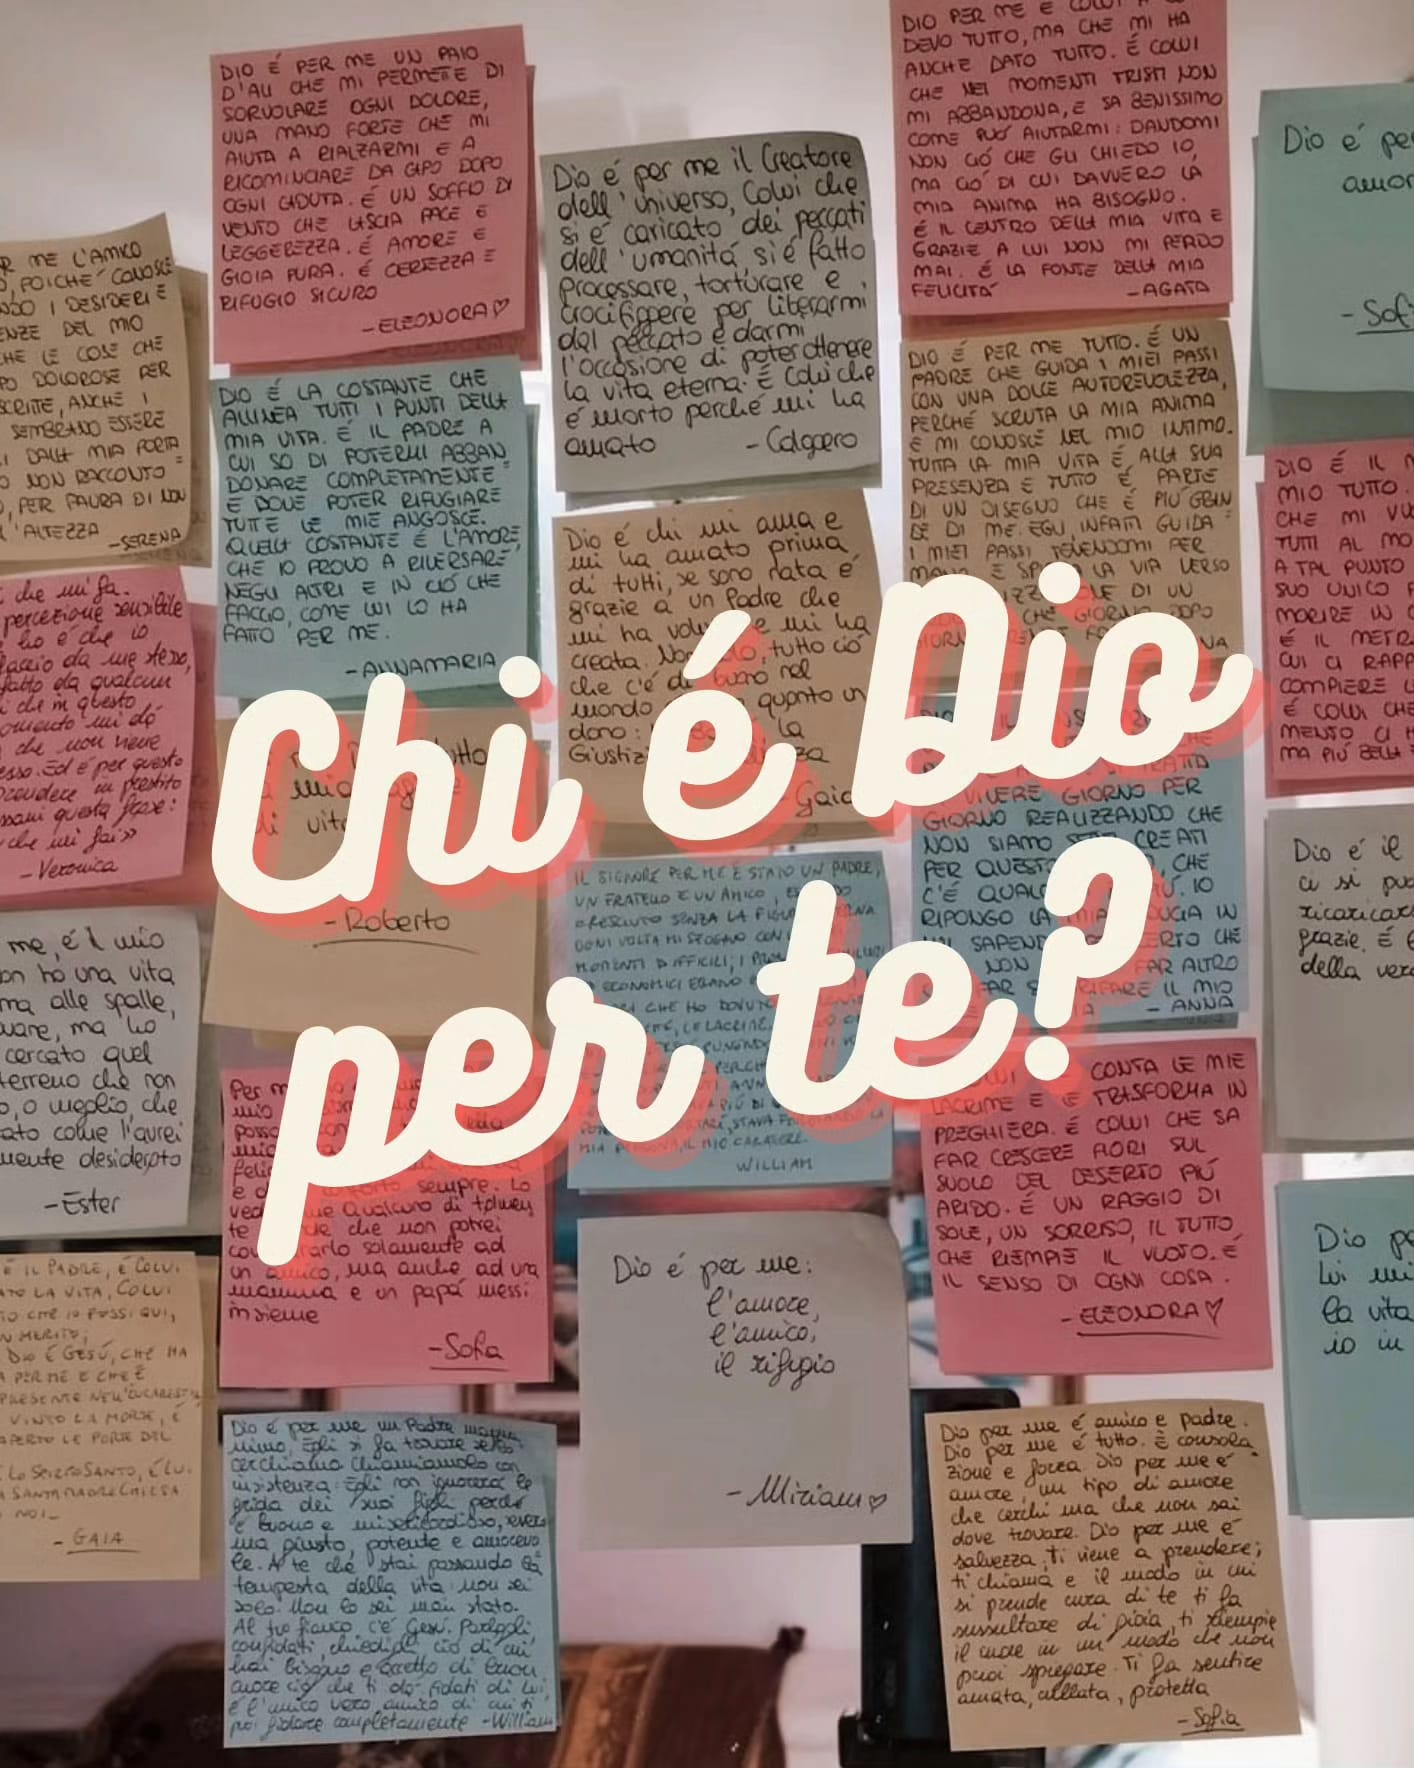 Chi é Dio
per te?
R ME L'AMICO
O, POICHÉ CONOSCE
NDO I DESIDERI E
ENZE DEL MIO
CHE LE COSE CHE
PO DOLOROSE PER
SCRITTE, ANCHE I
SEMBRANO ESSERE
I DALLA MIA PORTA
O NON RACCONTO
O, PER PAURA DI NON
L'ALTEZZA
-SERENA
che mi fa.
percezione sensibile
ho é che io
faccio da me stesso,
fatto da qualcun
i che in questo
omento mi dá
che non viene
esso. Ed é per questo
prendere in prestito
ssani questa frase:
che mi fai»
-Veronica
me, é il mio
on ho una vita
ma alle spalle,
ware, ma ho
cercato quel
terreno che non
o, o meglio, che
ato come l'avrei
mente desiderato
-Ester
É IL PADRE, É COLUI
ATO LA VITA, COLUI
TO CHE IO FOSSI QUI,
N MERITO;
DIO É GESÚ, CHE HA
A PER ME E CHE É
PRESENTE NELL'EUCARESTIA
VINTO LA MORTE, É
APERTO LE PORTE DEL
LO SPIRITO SANTO, É LUI
A SANTA MADRE CHIESA
NOI.
-GAIA
DIO É PER ME UN PAIO
D'ALI CHE MI PERMETTE DI
SORVOLARE OGNI DOLORE,
UNA MANO FORTE CHE MI
AIUTA A RIALZARMI E A
RICOMINCIARE DA CAPO DOPO
OGNI CADUTA. É UN SOFFIO DI
VENTO CHE LASCIA PACE E
LEGGEREZZA. É AMORE E
GIOIA PURA. É CERTEZZA E
RIFUGIO SICURO
-ELEONORA♡
DIO É LA COSTANTE CHE
ALLINEA TUTTI I PUNTI DELLA
MIA VITA. É IL PADRE A
CUI SO DI POTERMI ABBAN
DONARE COMPLETAMENTE
E DOVE POTER RIFUGIARE
TUTTE LE MIE ANGOSCE.
QUELLA COSTANTE É L'AMORE,
CHE IO PROVO A RIVERSARE
NEGLI ALTRI E IN CIÓ CHE
FACCIO, COME LUI LO HA
FATTO PER ME.
-ANNAMARIA
di vit
-Roberto
Per m
mio
posso
felic
e d sempre. Lo
ved Qualcuno di
te che non potrei
solamente ad
un amico, ma anche ad una
mamma e un papá messi
insieme
-Sofia
Dio é per me un Padre magna
nimo, Egli si fa trovare se lo
cerchiamo. Chiamiamolo con
insistenza. Egli non ignorerá le
grida dei suoi figli perché
é buono e misericordioso, severo
ma giusto, potente e amorevo
le. A te che stai passando la
tempesta della vita non sei
solo. Non lo sei mai stato.
Al tuo fianco c'é Gesú. Parlagli
confidati, chiedigli ció di cui
hai bisogno e accetta di buon
cuore ció che ti dá. Fidati di Lui,
é l'amico vero, amico di cui ti
poi fidare completamente -William
Dio é per me il Creatore
dell'universo, Colui che
si é caricato dei peccati
dell'umanitá, si é fatto
processare, torturare e
crocifiggere per liberarmi
dal peccato e darmi
l'occasione di poter ottenere
la vita eterna. É Colui che
é morto perché mi ha
amato -Calogero
Dio é chi mi ama e
mi ha amato prima
di tutti, se sono nata é
grazie a un Padre che
mi ha e mi ha
creata. Non tutto ció
che c'é di buono nel
mondo quanto un
dono: la
Giustiz
-Gaia
IL SIGNORE PER ME É STATO UN PADRE,
UN FRATELLO E UN AMICO,
CRESCIUTO SENZA LA FIGU
OGNI VOLTA MI SFOGAVO CON
MOMENTI DIFFICILI, I
ECONOMICI ERANO
CHE HO DOVUT
LE LACRIME
STAVA
MIA PERSONA, IL MIO CARATTERE.
WILLIAM
Dio é per me:
l'amore,
l'amico,
il rifugio
-Miriam♡
DIO PER ME É COLUI A CUI
DEVO TUTTO, MA CHE MI HA
ANCHE DATO TUTTO. É COLUI
CHE NEI MOMENTI TRISTI NON
MI ABBANDONA, E SA BENISSIMO
COME PUÓ AIUTARMI: DANDOMI
NON CIÓ CHE GLI CHIEDO IO
MA CIÓ DI CUI DAVVERO LA
MIA ANIMA HA BISOGNO.
É IL CENTRO DELLA MIA VITA E
GRAZIE A LUI NON MI PERDO
MAI. É LA FONTE DELLA MIA
FELICITÁ -AGATA
DIO É PER ME TUTTO. É UN
PADRE CHE GUIDA I MIEI PASSI
CON UNA DOLCE AUTOREVOLEZZA,
PERCHÉ SCRUTA LA MIA ANIMA
E MI CONOSCE NEL MIO INTIMO.
TUTTA LA MIA VITA É ALLA SUA
PRESENZA E TUTTO É PARTE
DI UN DISEGNO CHE É PIÚ GRAN
DE DI ME. EGLI, INFATTI GUIDA
I MIEI PASSI TENENDOMI PER
MANO E LA VIA VERSO
DI UN
CHE GIORNO DOPO
GIORN
VIVERE GIORNO PER
GIORNO REALIZZANDO CHE
NON SIAMO CREATI
PER QUESTO CHE
C'É QUAL IO
RIPONGO LA IN
SAPEND CHE
NON FAR ALTRO
IL MIO
-ANNA
CONTA LE MIE
LACRIME E LE TRASFORMA IN
PREGHIERA. É COLUI CHE SA
FAR CRESCERE FIORI SUL
SUOLO DEL DESERTO PIÚ
ARIDO. É UN RAGGIO DI
SOLE, UN SORRISO, IL TUTTO
CHE RIEMPIE IL VUOTO. É
IL SENSO DI OGNI COSA.
-ELEONORA♡
Dio per me é amico e padre.
Dio per me é tutto. É consola
zione e forza. Dio per me é
amore, un tipo di amore
che cerchi ma che non sai
dove trovare. Dio per me é
salvezza, ti viene a prendere;
ti chiama e il modo in cui
si prende cura di te ti fa
sussultare di gioia, ti riempie
il cuore in un modo che non
puoi spiegare. Ti fa sentire
amata, cullata, protetta
-Sofia
Dio é per
amor
-Sof
DIO É IL M
MIO TUTTO.
CHE MI VU
TUTTI AL MO
A TAL PUNTO
SUO UNICO F
MORIRE IN C
É IL METR
CUI CI RAPP
COMPIERE L
É COLUI CHE
MENTO CI H
MA PIÚ BELLA
Dio é il
ci si puó
ricaricar
grazie. É
della ver
Dio pe
Lui mi
la vita
io in